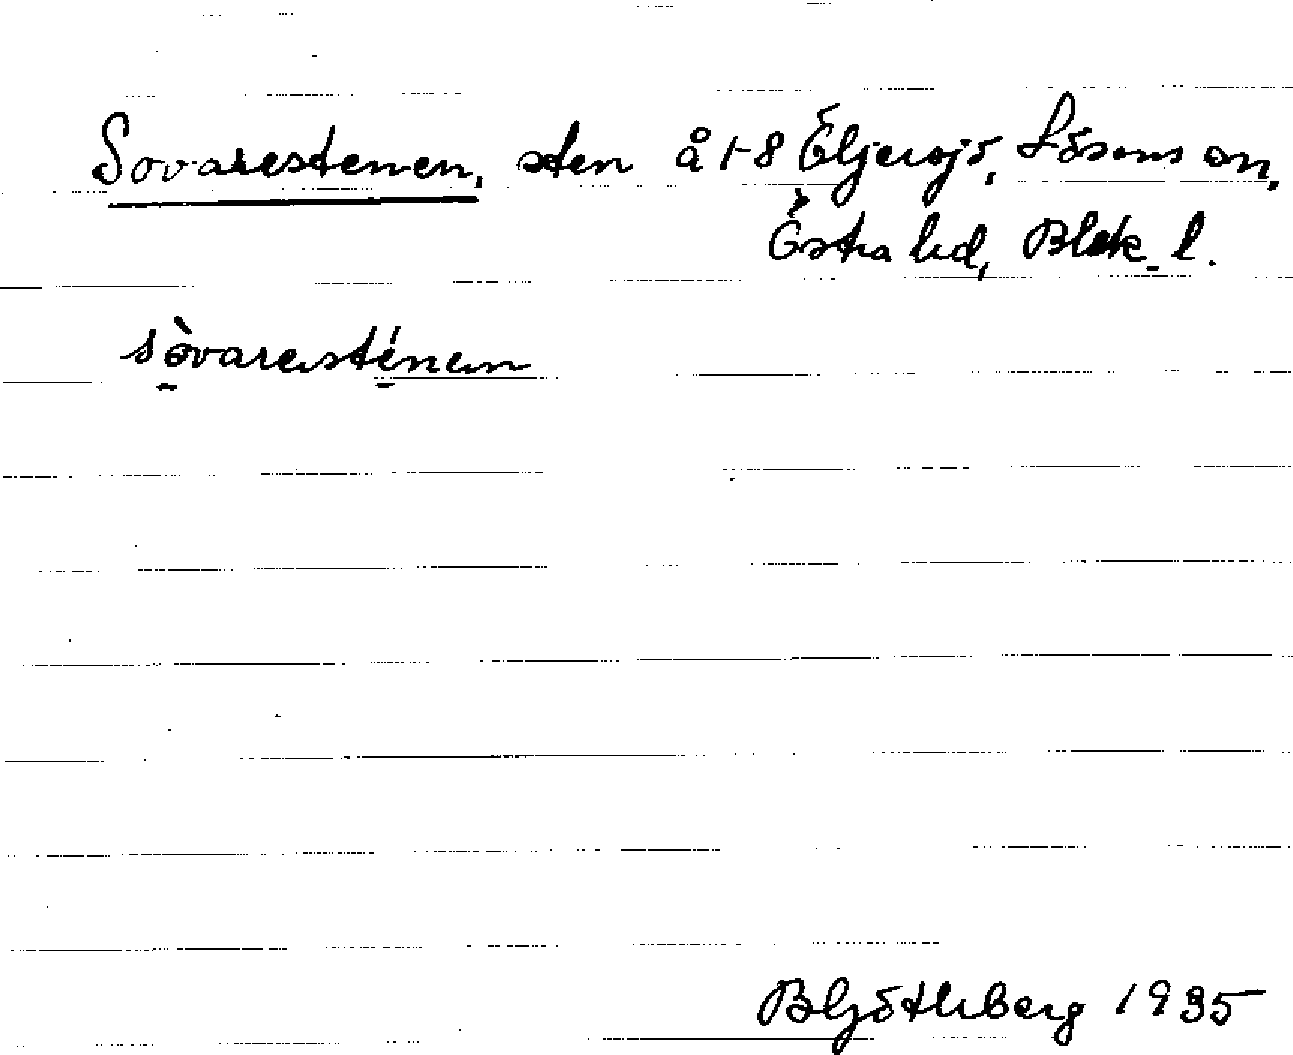 Sovarestenen, sten å 1-8 Eljersjö, Lösens sn,
Östra hd, Blek. l.
sòvaresténen
B Göthberg 1935